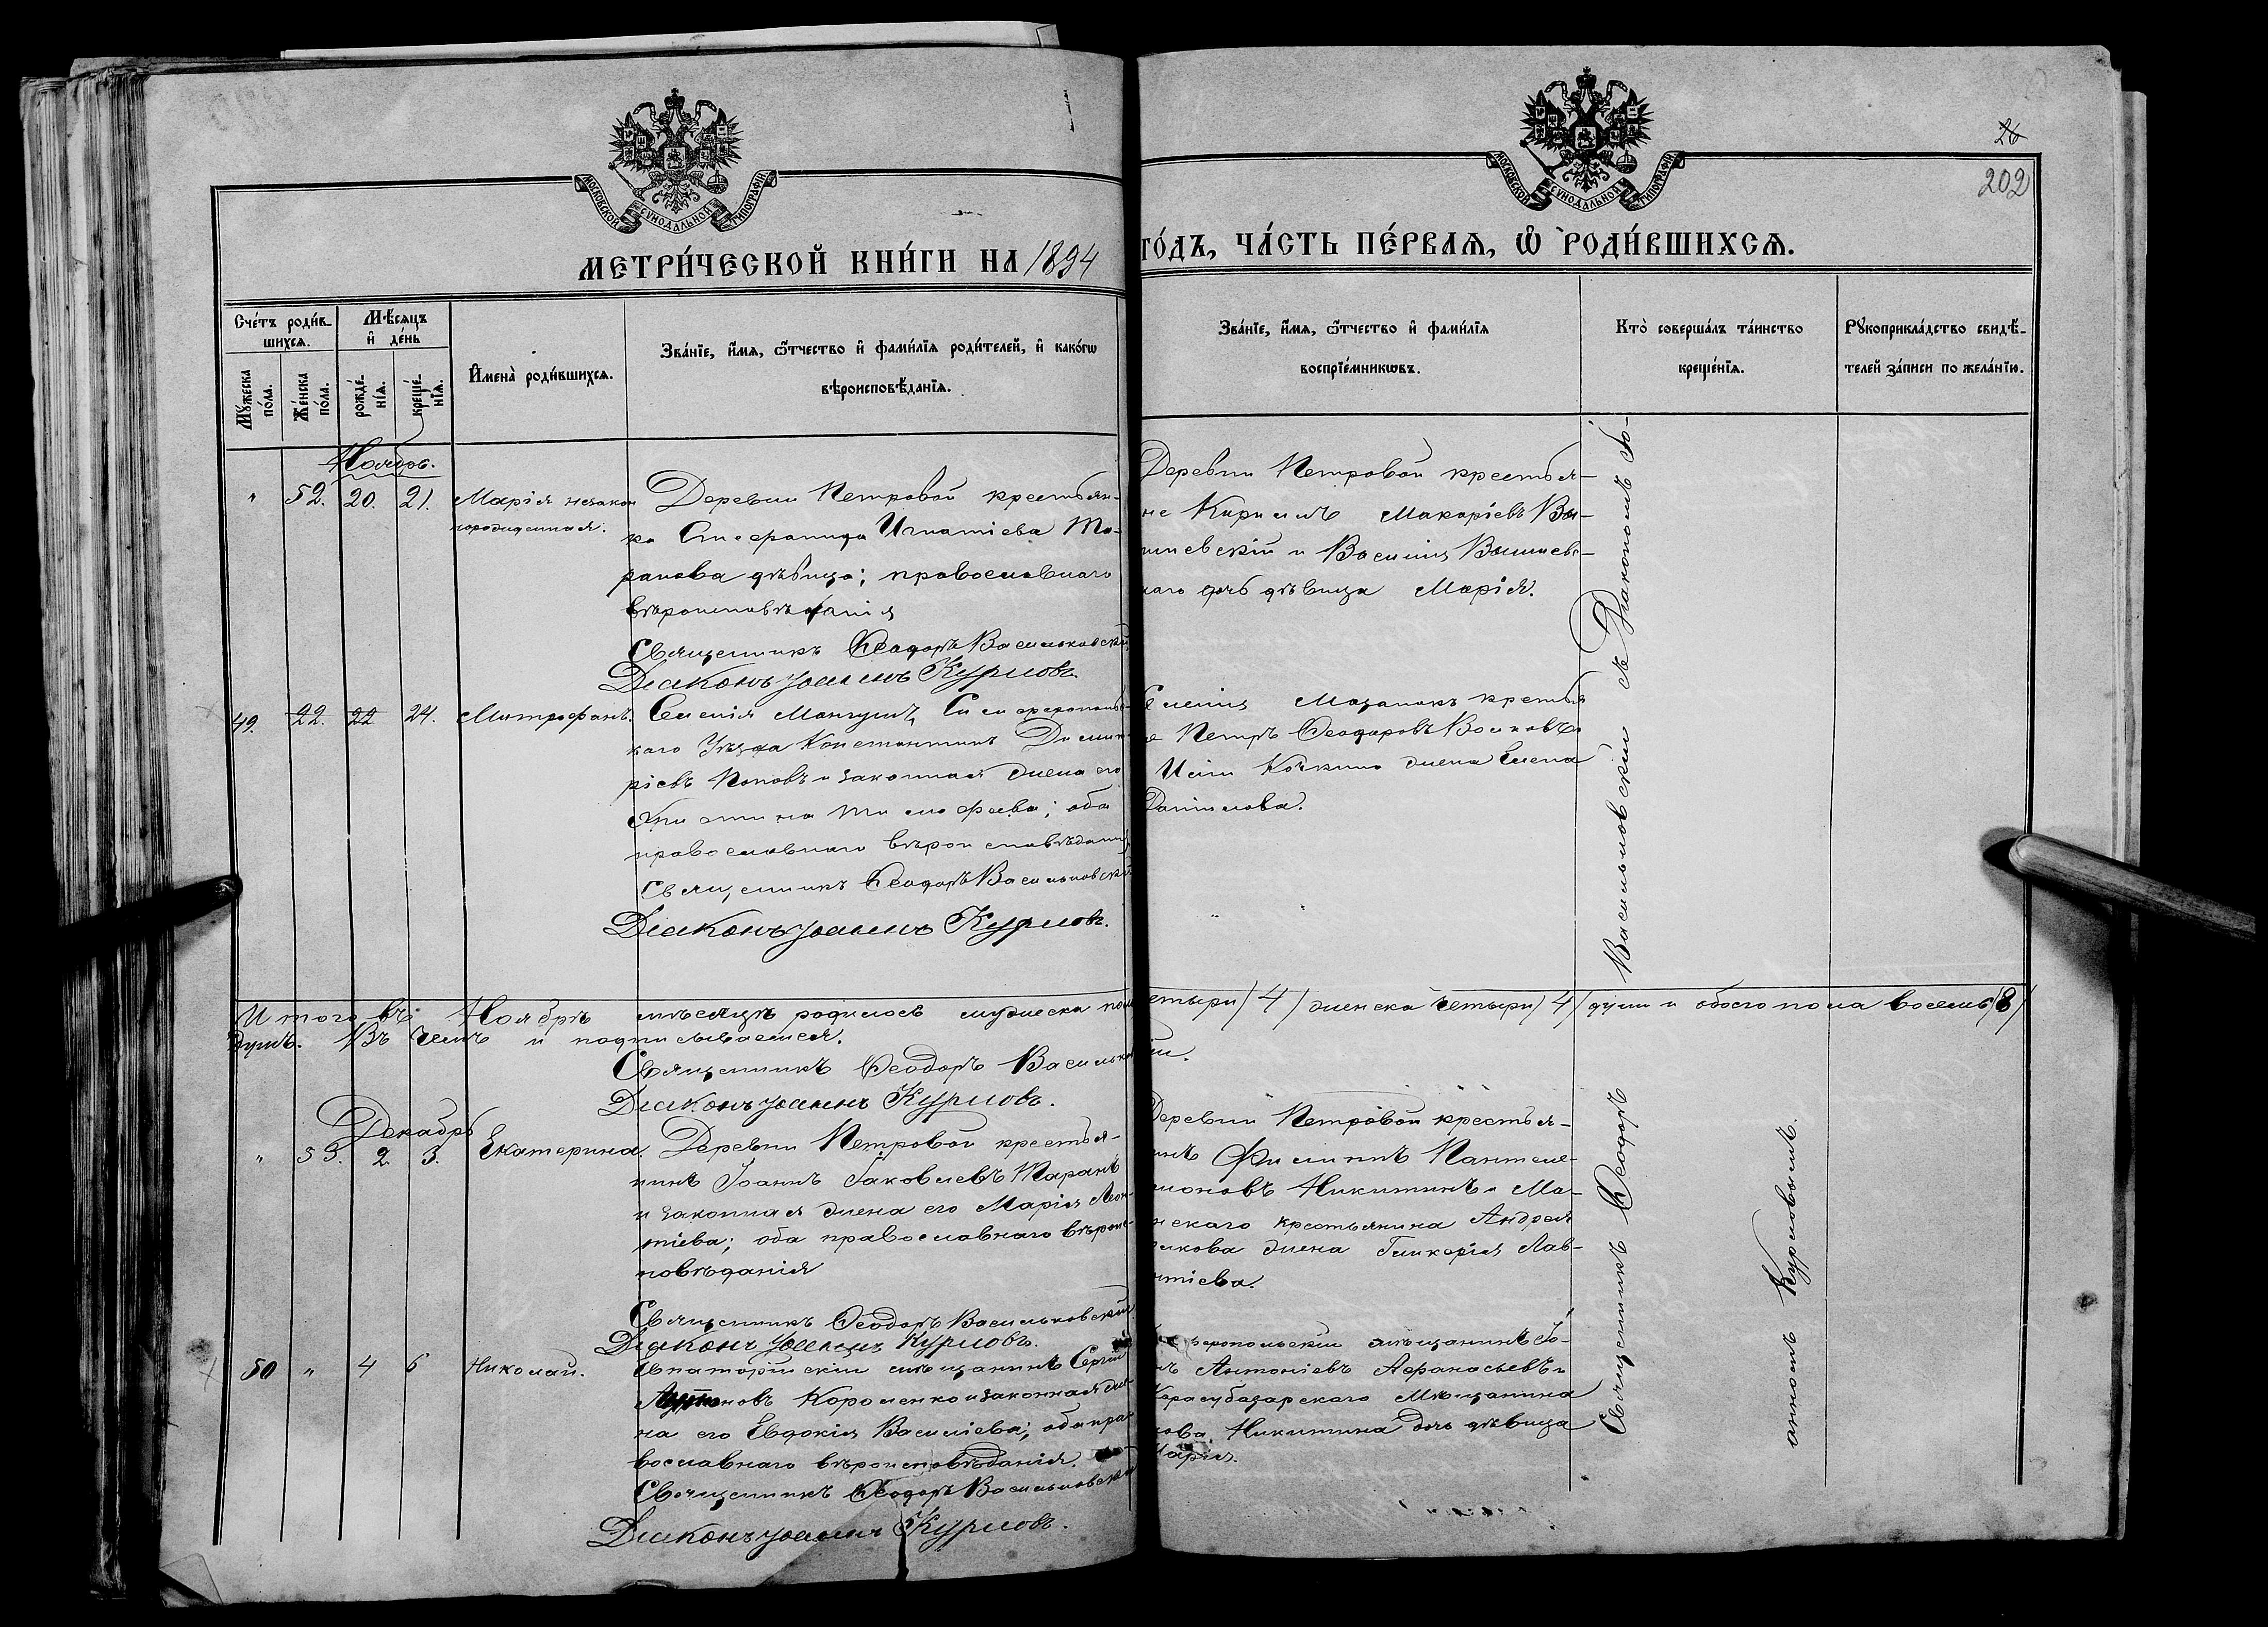 26
202
МОСКОВСКОЙ СѴНОДАЛЬНОЙ ТИПОГРАФІИ
МОСКОВСКОЙ СѴНОДАЛЬНОЙ ТИПОГРАФІИ
МЕТРИ́ЧЕСКОЙ КНИ́ГИ НА 1894
ГО́ДЪ, ЧА́СТЬ ПЕ́РВАѦ, Ѡ РОДИ́ВШИХСѦ.
Сче́тъ роди́в-
шихсѧ.
Мꙋ́жеска по́ла.
Же́нска по́ла.
Мѣ́сѧцъ
и҆ де́нь
рожде́-нїѧ.
креще́-нїѧ.
И҆мена̀ роди́вшихсѧ.
Зва́нїе, и҆́мѧ, ѻ҆́тчество и҆ фами́лїѧ роди́телей, и҆ како́гѡ
вѣроисповѣ́данїѧ.
Зва́нїе, и҆́мѧ, ѻ҆́тчество и҆ фами́лїѧ
воспрїе́мникѡвъ.
Кто̀ соверша́лъ та́инство
креще́нїѧ.
Рꙋкоприкла́дство свидѣ́-
телей за́писи по жела́нїю.
Ноябрь.
" 52. 20. 21. Марія незакон
норожденная.
Деревни Петровой крестьян-
ка Стефанида Игнатіева Та-
ранова дѣвица; православнаго
вѣроисповѣданія
Священникъ Ѳеодоръ Васильковскій
Діаконъ Іоаннъ Курловъ.
Деревни Петровой крестья-
не Кириллъ Макаріевъ
и Василія
наго дочь дѣвица Марія.
49. 22. 22 24. Митрофанъ.
Селенія Мангушъ, Симферополь-
каго Уѣзда Константинъ Дими-
ріевъ Поповъ и законная жена его
Христина Тимофеева; оба
православнаго вѣроисповѣданія
Священникъ Ѳеодоръ Васильковскій
Діаконъ Іоаннъ Курловъ.
Селенія Мазанокъ крестья
не Петръ Ѳеодоровъ Волковъ и
жена Елена
Даниилова.
Итого въ Ноябрѣ мѣсяцѣ родилось мужеска пола
етыри /4/ женска четыри /4/ души и обоего пола восемь /8/
душъ. Въ чемъ и подписываемся.
Священникъ Ѳеодоръ Васильков
Діаконъ Іоаннъ Курловъ.
Декабрь
" 53. 2. 3. Екатерина.
Деревни Петровой крестья-
нинъ Іоаннъ Іаковлевъ Таранъ
и законная жена его Марія Леон-
тіева; оба православнаго вѣроис-
повѣданія
Священникъ Ѳеодоръ Васильковскій
Діаконъ Іоаннъ Курловъ.
Деревни Петровой крестья-
инъ Филиппъ Пантеле-
моновъ Никитинъ и Ма-
нскаго крестьянина Андрея
жена Гликерія Лав-
нтіева.
50 " 4 6 Николай.
Евпаторійскій мѣщанинъ Сергій
Короленко и законная же-
на его Евдокія Василіева; оба пра-
вославнаго вѣроисповѣданія.
Священникъ Ѳеодоръ Васильковскій
Діаконъ Іоаннъ Курловъ.
феропольскій мѣщанинъ Іо-
нъ Антоніевъ Афанасьевъ и
Карасубазарскаго Мѣщанина
Никитина дочь дѣвица
Марія.
Священникъ Ѳеодоръ Васильковскій съ Діакономъ Іо-
анномъ Курловымъ.